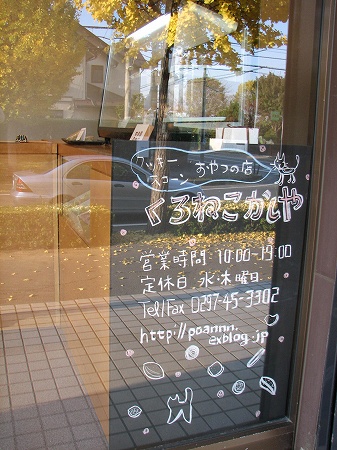 クッキー
スコーン おやつの店
くろねこかしや
営業時間 10:00-19:00
定休日 水・木曜日
Tel/Fax 0297-45-3302
http://poannn.
exblog.jp